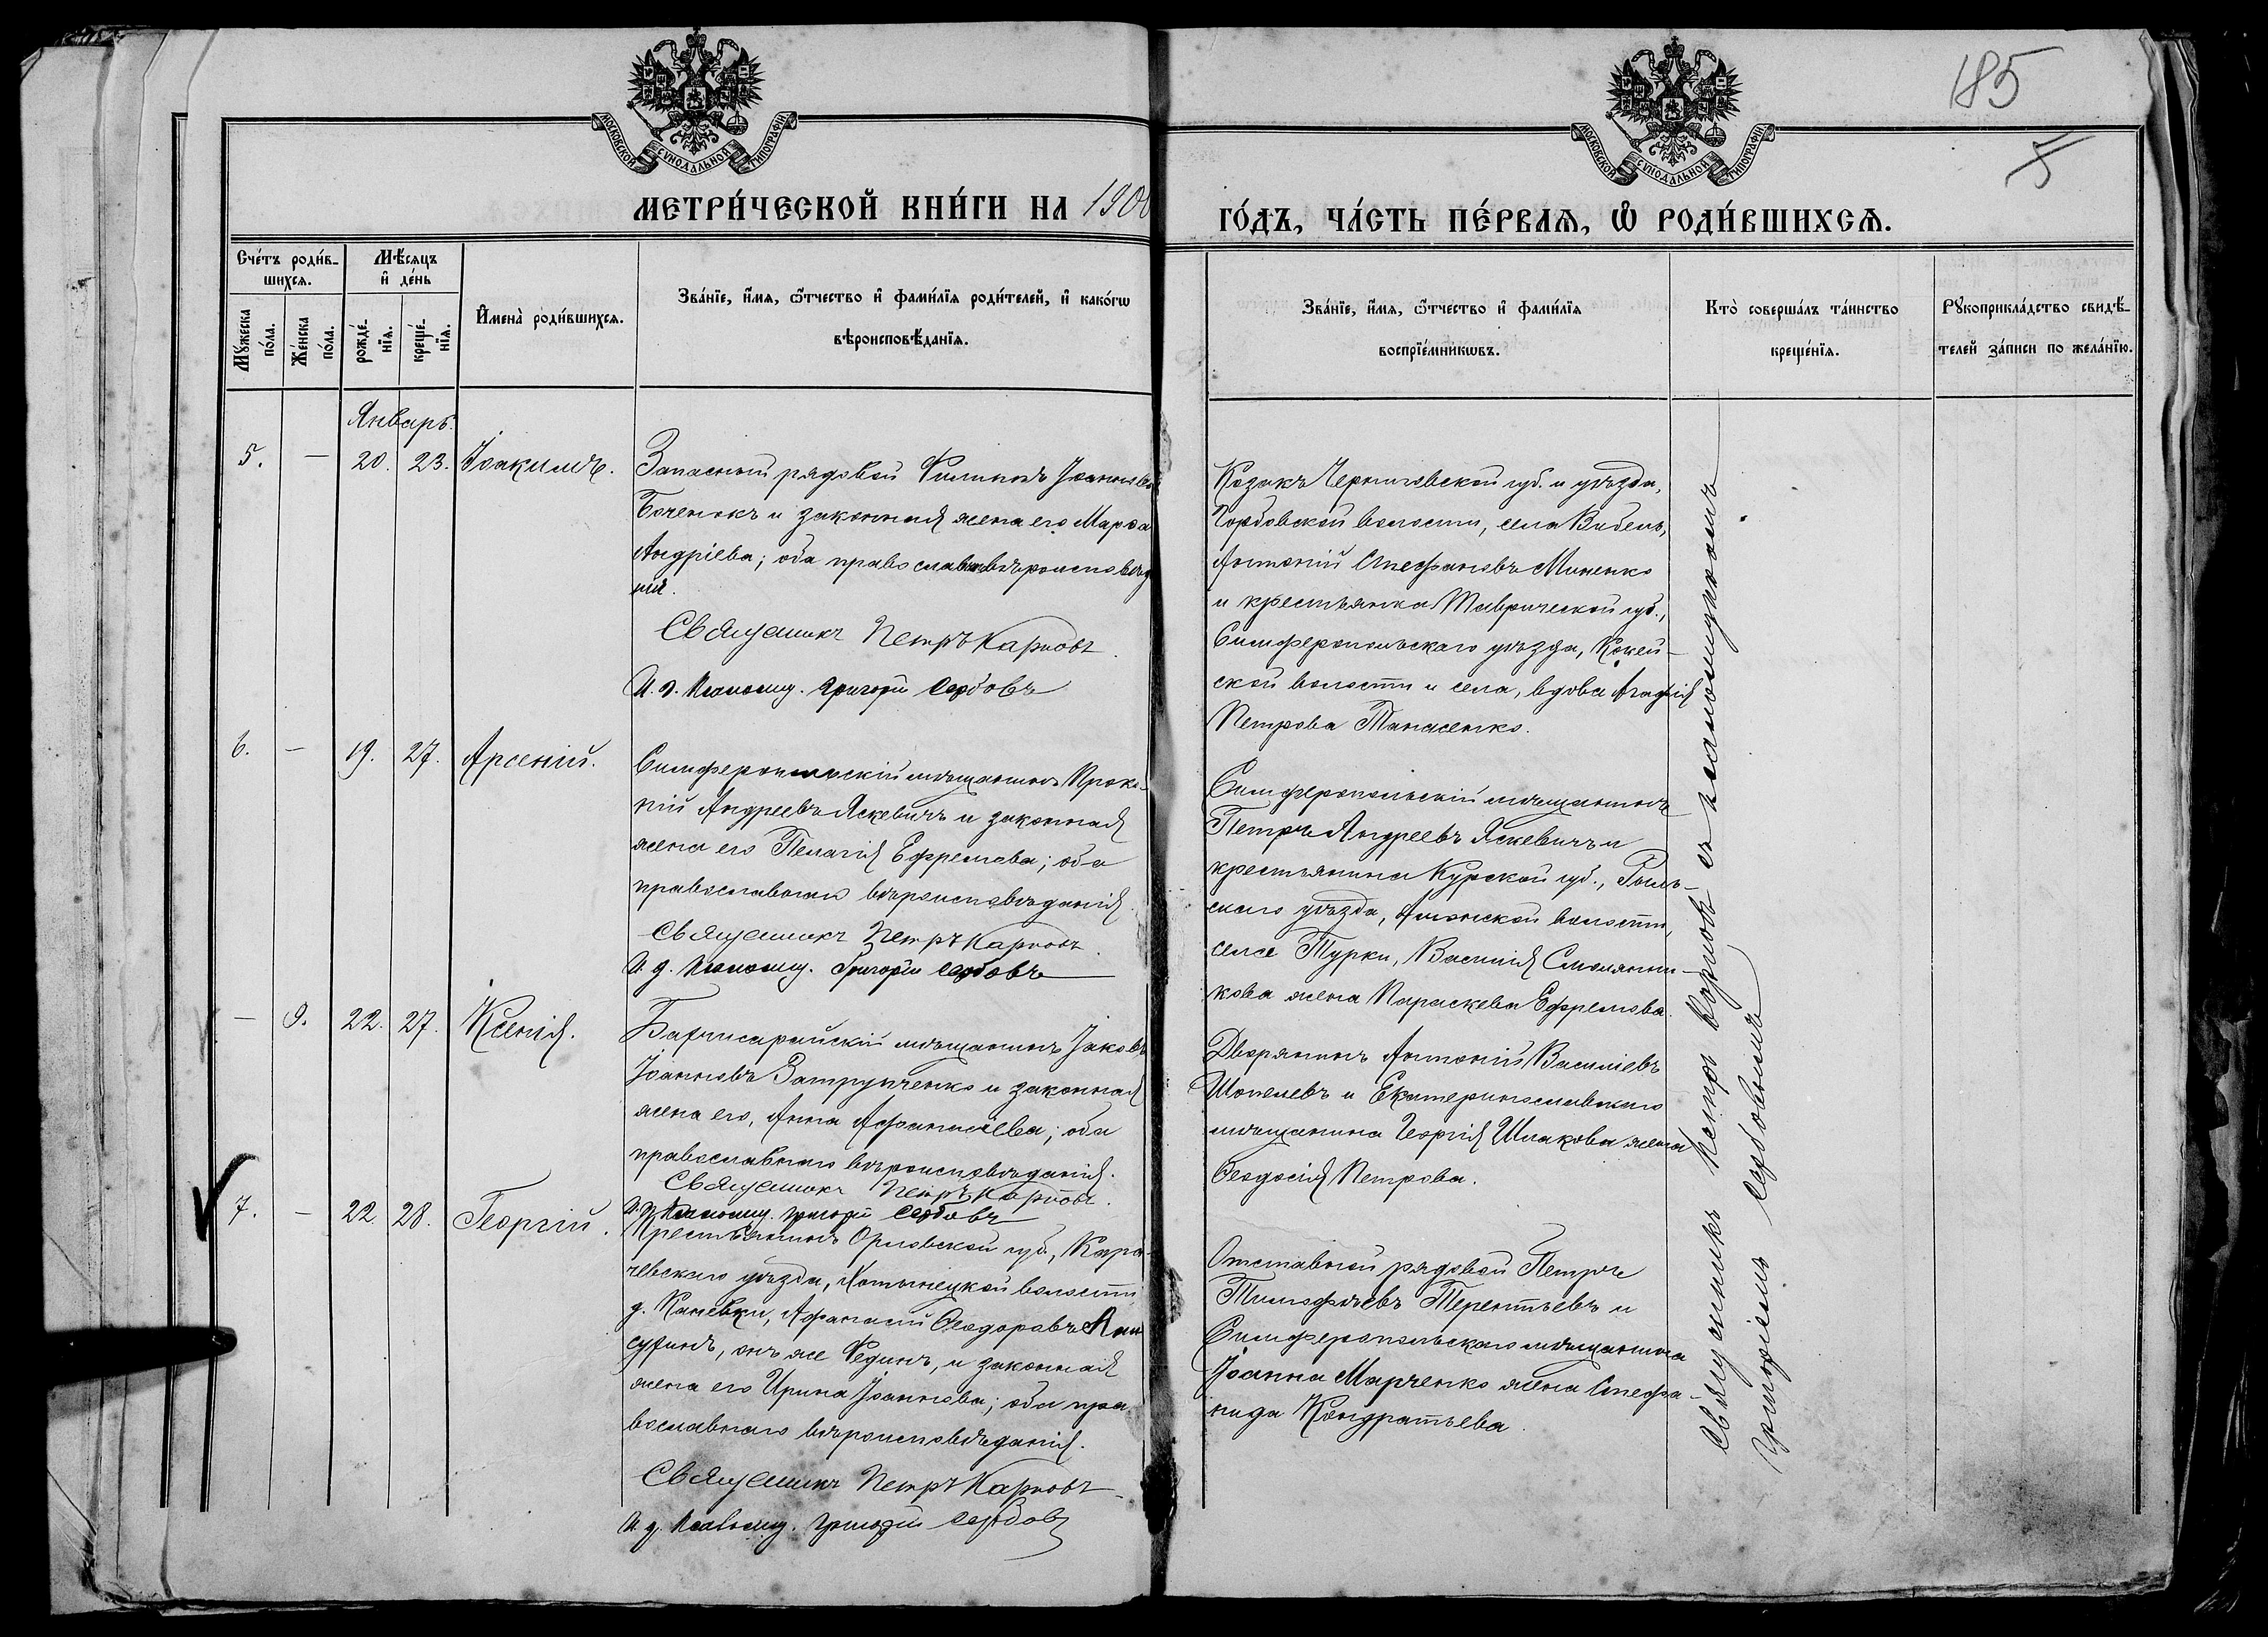 185
5
МОСКОВСКОЙ СѴНОДАЛЬНОЙ ТИПОГРАФІИ
МОСКОВСКОЙ СѴНОДАЛЬНОЙ ТИПОГРАФІИ
МЕТРИ́ЧЕСКОЙ КНИ́ГИ НА 1900
ГО́ДЪ, ЧА́СТЬ ПЕ́РВАѦ, Ѽ РОДИ́ВШИХСѦ.
Сче́тъ роди́в-
шихсѧ.
Мꙋ́жеска по́ла.
Же́нска по́ла.
Мѣ́сѧцъ
и҆ де́нь
рожде́-
нїѧ.
креще́-
нїѧ.
И҆мена̀ роди́вшихсѧ.
Зва́нїе, и҆́мѧ, ѻ҆́тчество и҆ фами́лїѧ роди́телей, и҆ како́гѡ
вѣроисповѣ́данїѧ.
Зва́нїе, и҆́мѧ, ѻ҆́тчество и҆ фами́лїѧ
воспрїе́мникѡвъ.
Кто̀ соверша́лъ та́инство
креще́нїѧ.
Рꙋкоприкла́дство свидѣ́-
телей за́писи по жела́нїю.
Январь.
5. — 20. 23. Іоакимъ.
Запасный рядовой Филиппъ Іоанновъ
Боченокъ и законная жена его Марѳа
Андріева; оба православн. вѣроисповѣда
нія.
Священникъ Петръ Карповъ.
И. д. Псаломщ. Григорій Сербовъ
Козакъ Черниговской губ. и уѣзда,
Горбовской волости, села Выбель,
Антоній Стефановъ Миненко
и крестьянка Таврической губ.,
Симферопольскаго уѣзда,
ской волости и села, вдова Агафія
Петрова Танасенко.
6. — 19. 27. Арсеній.
Симферопольскій мѣщанинъ Проко-
пій Андреевъ Яскевичъ и законная
жена его Пелагія Ефремова; оба
православнаго вѣроисповѣданія.
Священникъ Петръ Карповъ.
И. д. Псаломщ. Григорій Сербовъ
Симферопольскій мѣщанинъ
Петръ Андреевъ Яскевичъ и
крестьянина Курской губ., Рыль-
скаго уѣзда, волости,
села Турки, Василія Смолянни-
кова жена Параскева Ефремова.
— 9. 22. 27. Ксенія.
Бахчисарайскій мѣщанинъ Іаковъ
Іоанновъ Затрупченко и законная
жена его, Анна Аѳанасіева; оба
православнаго вѣроисповѣданія.
Священникъ Петръ Карповъ.
И. д. Псаломщ. Григорій Сербовъ
Дворянинъ Антоній Василіевъ
Шопелевъ и Екатеринославскаго
мѣщанина Георгія Шлакова жена
Ѳеодосія Петрова.
7. — 22. 28. Георгій.
Крестьянинъ Орловской губ., Кара-
чевскаго уѣзда, Хотынецкой волости,
д. Каневки, Аѳанасій Ѳеодоровъ
онъ же Фединъ, и законная
жена его Ирина Іоаннова; оба пра
вославнаго вѣроисповѣданія.
Священникъ Петръ Карповъ
И. д. Псаломщ. Григорій Сербовъ
Отставной рядовой Петръ
Тимофѣевъ Терентьевъ и
Симферопольскаго мѣщанина
Іоанна Марченко жена Стефа-
нида Кондратьева.
Священникъ Петръ Карповъ съ псаломщикомъ
Григоріемъ Сербовымъ